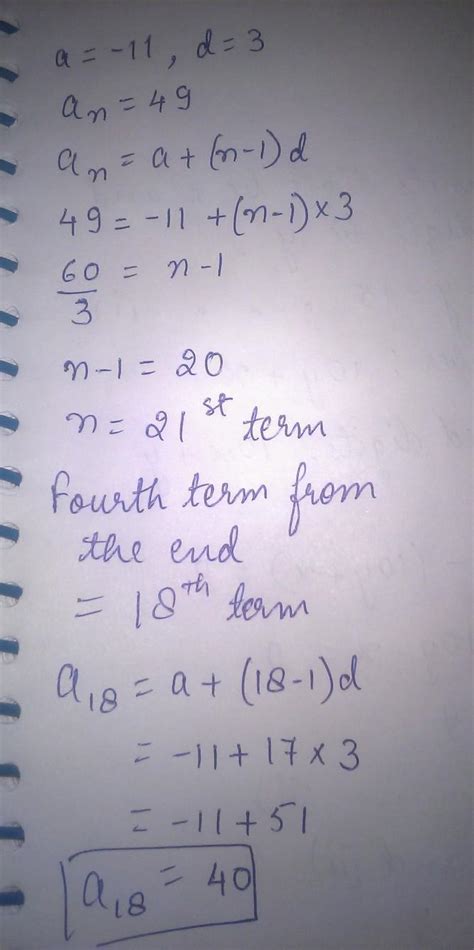 a = -11 , d = 3
aₙ = 49
aₙ = a + (n-1) d
49 = -11 + (n-1) × 3
60/3 = n-1
n-1 = 20
n = 21ˢᵗ term
Fourth term from
the end
= 18ᵗʰ term
a₁₈ = a + (18-1)d
= -11 + 17 × 3
= -11 + 51
a₁₈ = 40